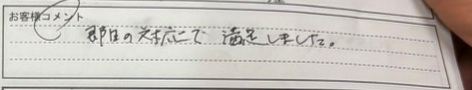 お客様コメント
即日の対応にて 満足しました。